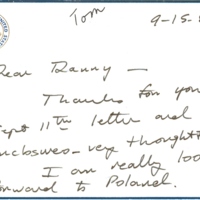 Tom
9-15-
Dear Danny —
Thanks for you
Sept 11th letter and
nclosures - very thought
I am really loo
orward to Poland.